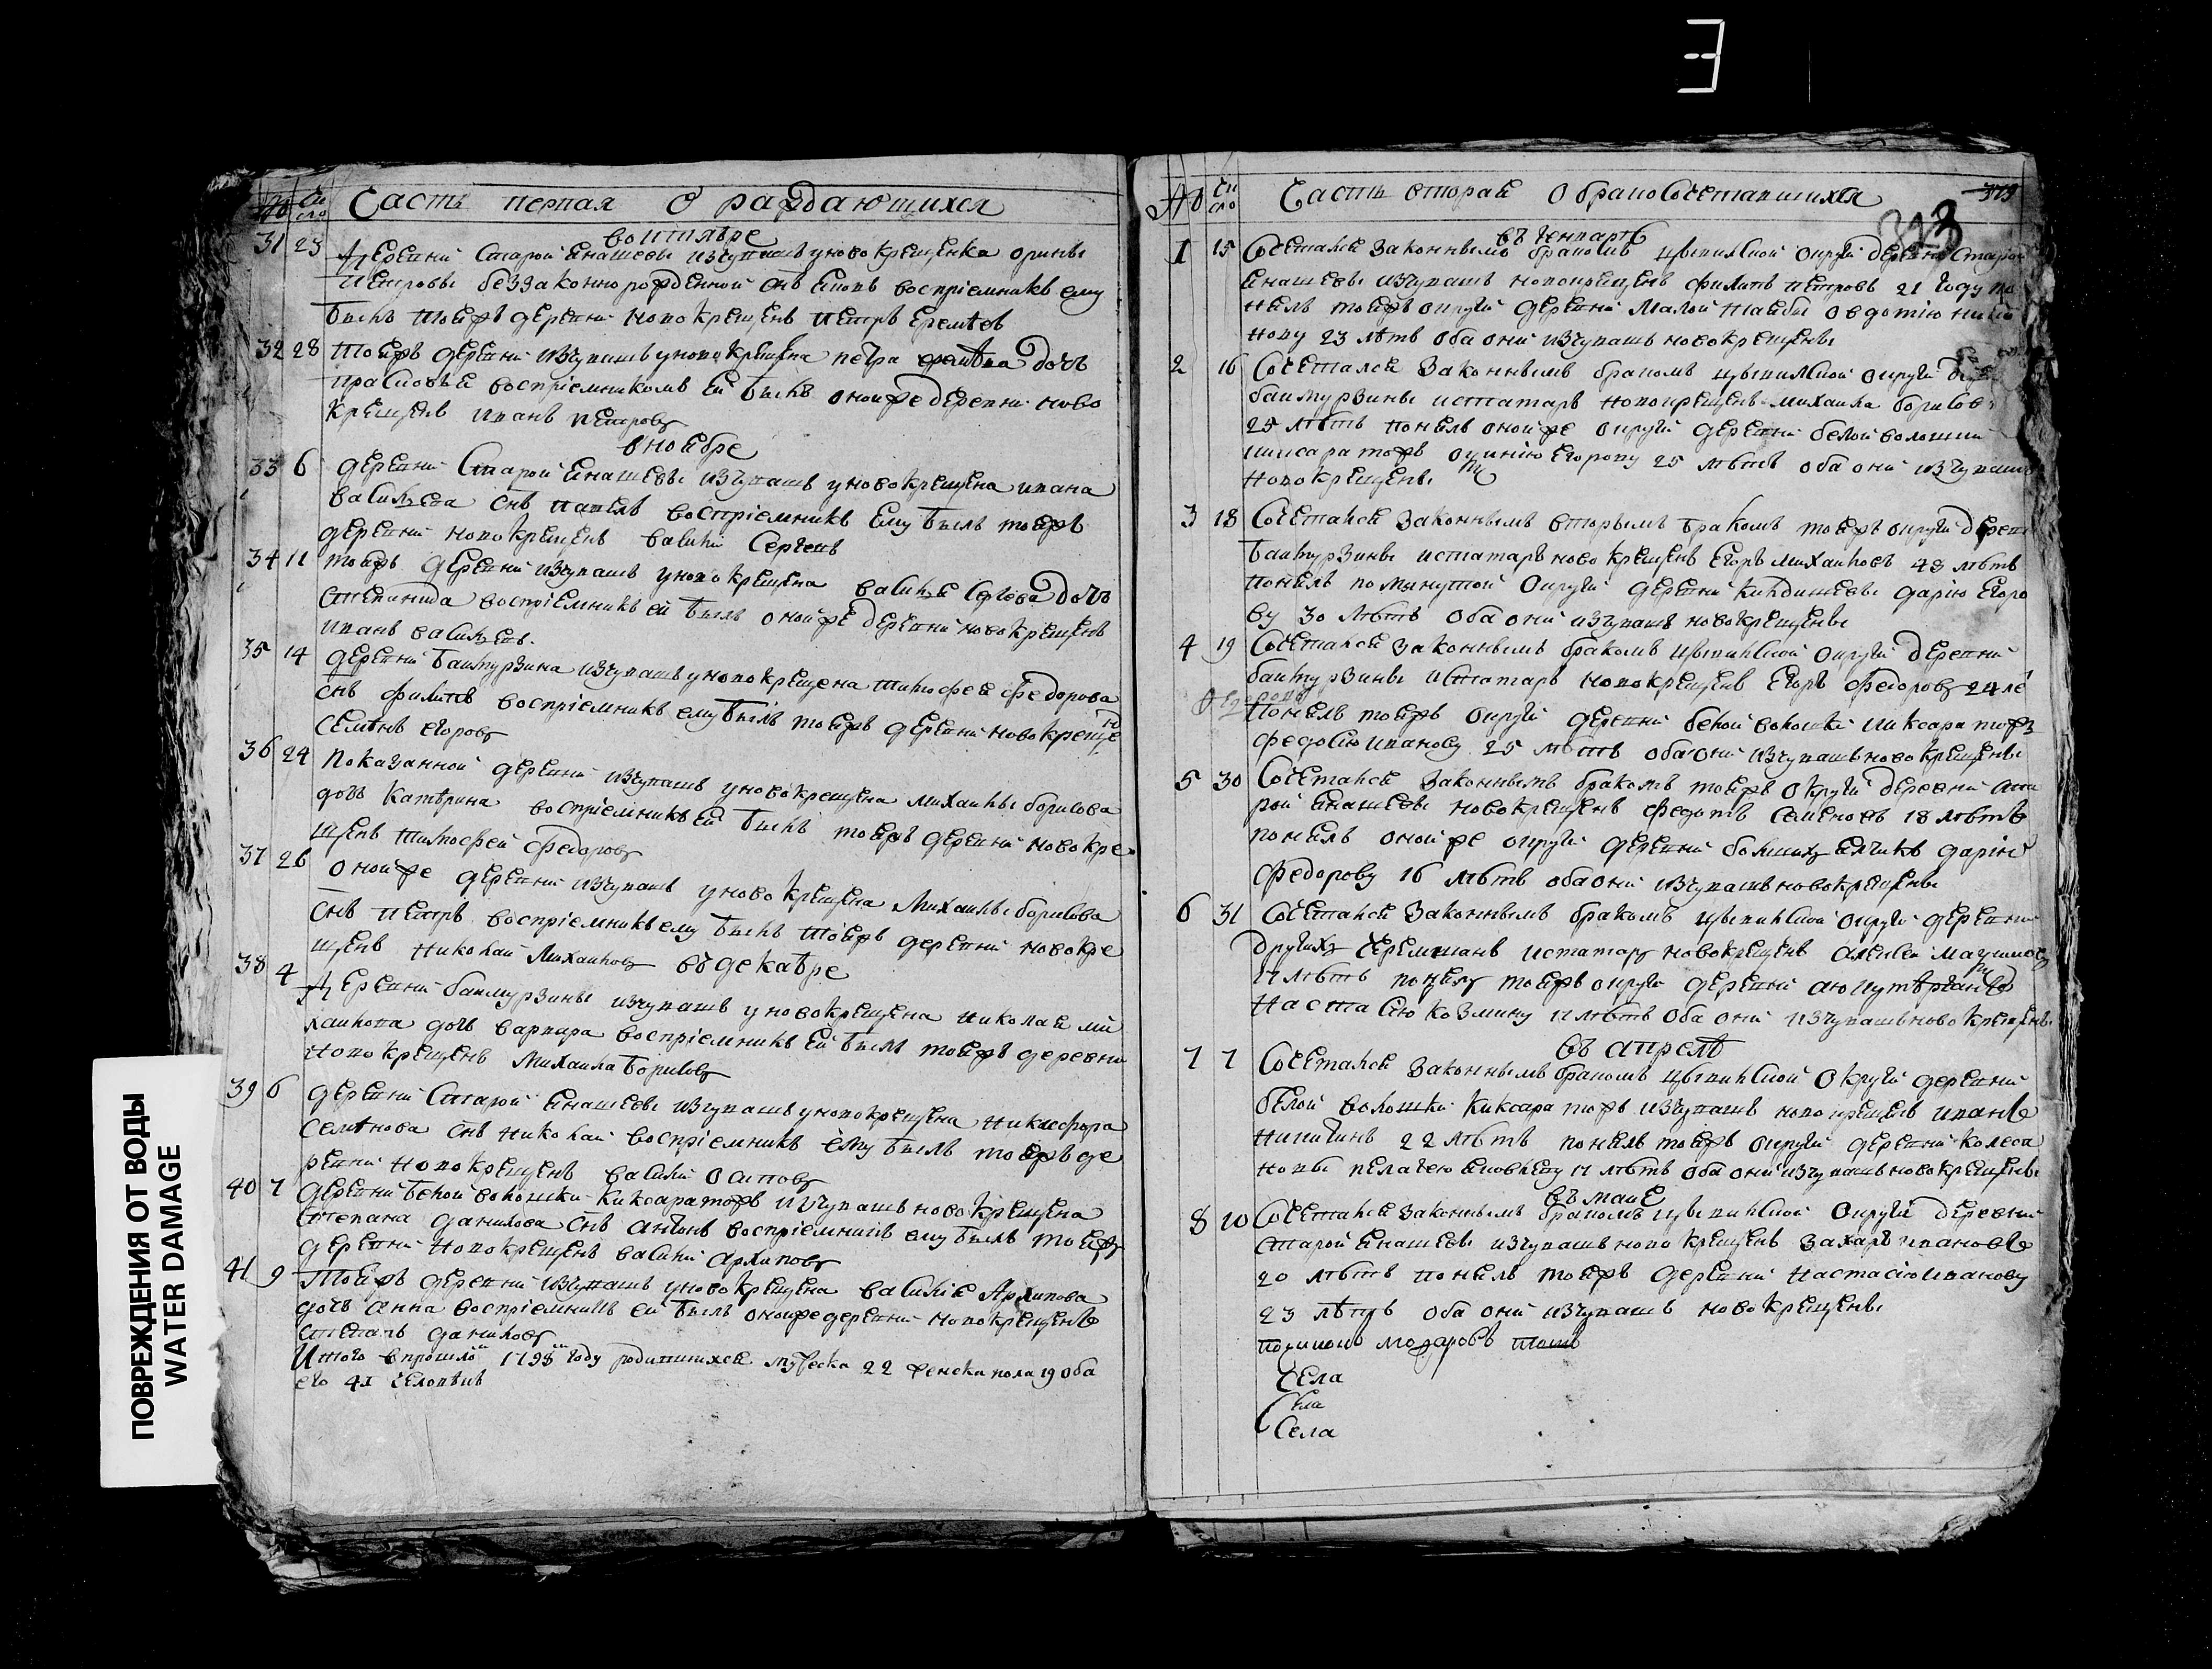 № Чи
сло Часть первая о раждающихся
воктябре
31 23 Деревни Старой Янашевы изчувашъ у новокрещенка орины
петровы беззаконно рожденной снъ яковъ воспріемникъ ему
былъ тойжъ деревни новокрещенъ петръ еремѣев
32 28 тойжъ деревни изчувашъ у новокрещена петра еремѣева дочь
прасковья воспріемникомъ ей былъ онойже деревни ново
крещенъ иванъ петровъ
в ноябре
33 6 деревни Старой Янашевы изчувашъ у новокрещена ивана
васильева снъ павелъ воспріемникъ ему былъ тойжъ
деревни новокрещенъ василий Сергеевъ
34 11 тойжъ деревни изчувашъ у новокрещена василья Сергеева дочь
степанида воспріемникъ ей былъ онойже деревни новокрещенъ
иванъ васильевъ.
35 14 деревни баимурзина изчувашъ у новокрещена тимофея федорова
снъ филипъ воспріемникъ ему былъ тойжъ деревни новокрещен
Семенъ егоровъ
36 24 показанной деревни изчувашъ у новокрещена михаилы борисова
дочь катѣрина воспріемникъ ей былъ тойжъ деревни новокре
щенъ тимофей федоровъ
37 26 онойже деревни изчувашъ у новокрещена михаилы борисова
снъ петръ воспріемникъ ему былъ тойжъ деревни новокре
щенъ николай михаиловъ
въ декабре
38 4 Деревни баимурзины изчувашъ у новокрещена николая ми
хаилова дочь варвара воспріемникъ ей былъ тойжъ деревни
новокрещенъ михаила борисовъ
39 6 деревни Старой Янашевы изчувашъ у новокрещена никифора
семѣнова снъ николай воспріемникъ ему былъ тойжъ де
ревни новокрещенъ василий осиповъ
40 7 деревни белой волошки киксаратожъ изчувашъ новокрещена
степана данилова снъ антонъ воспріемникъ ему былъ тойжъ
деревни новокрещенъ василий архиповъ
41 9 тойжъ деревни изчувашъ у новокрещена василія Архипова
дочь анна воспріемникъ ей былъ онойже деревни новокрещенъ
степанъ даниловъ
Итого впрошлом 1798м году родившихся мужеска 22 женска пола 19 оба
его 41 человѣкъ
№ Чи
сло Часть вторая о бракосочетавшихся 379
313
въ генваре
1 15 Сочетался законнымъ бракомъ цывилской округи деревни Старой
Янашевы изчувашъ новокрещенъ филипъ петровъ 21 году по
нялъ тойжъ округи деревни малой таябы овдотію
нову 23 лѣтъ оба они изчувашъ новокрещены
2 16 Сочетался законнымъ бракомъ цывилской округи
баимурзины истатаръ новокрещенъ михаила борисов
25 лѣтъ понялъ онойже округи деревни белой волошки
киксаратожъ егорову 25 лѣтъ оба они изчувашъ
новокрещены
3 18 Сочетался законнымъ вторымъ бракомъ тойжъ округи деревни
баимурзины истатаръ новокрещенъ егоръ михаиловъ 43 лѣтъ
понялъ помянутой округи деревни килдишевы дарію егоро
ву 30 лѣтъ оба они изчувашъ новокрещены
4 19 Сочетался законнымъ бракомъ цывилской округи деревни
баимурзины истатаръ новокрещенъ егоръ федоровъ 24 ле
понялъ тойжъ округи деревни белой волошки киксаратожъ
федосію иванову 25 лѣтъ оба они изчувашъ новокрещены
5 30 Сочетался законнымъ бракомъ тойжъ округи деревни ста
рой Янашевы новокрещенъ федотъ семеновъ 18 лѣтъ
понялъ онойже округи деревни большихъ ялчикъ дарію
федорову 16 лѣтъ оба они изчувашъ новокрещены
6 31 Сочетался законнымъ бракомъ цывилской округи деревни
другихъ черемшанъ истатаръ новокрещенъ алексей
17 лѣтъ понялъ тойжъ округи деревни
настасію козмину 17 лѣтъ оба они изчувашъ новокрещены
въ апреле
7 7 Сочетался законнымъ бракомъ цывилской округи деревни
белой волошки киксаратожъ изчувашъ новокрещенъ иванъ
никитинъ 22 лѣтъ понялъ тойжъ округи деревни колеса
новы пелагею яковлеву 17 лѣтъ оба они изчувашъ новокрещены
въ мае
8 10 Сочетался законнымъ бракомъ цывилской округи деревни
старой Янашевы изчувашъ новокрещенъ захаръ ивановъ
20 лѣтъ понялъ тойжъ деревни настасію иванову
23 лѣтъ оба они изчувашъ новокрещены
Села
Села
Села
ПОВРЕЖДЕНИЯ ОТ ВОДЫ
WATER DAMAGE